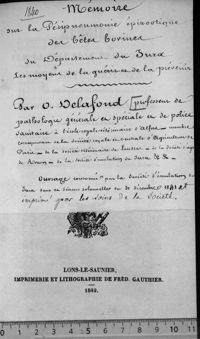 1840
Mémoire
sur la Péripneumonie épizootique
des bêtes bovines
du Département du Jura
Les moyens de la guérir et de la prévenir
Par O. Delafond professeur de
pathologie générale et spéciale et de police
sanitaire à l'école royale vétérinaire d'Alfort, membre
correspondant de la société royale et centrale d'Agriculture de
Paris de la société vétérinaire de
de la Société d'émulation du Jura &. &.
Ouvrage couronné par la Société d'émulation du
Jura dans sa séance solennelle du 20 décembre 1841 et
imprimé par les soins de la Société.
LONS-LE-SAUNIER,
IMPRIMERIE ET LITHOGRAPHIE DE FRÉD. GAUTHIER.
1842.
0 1 2 3 4 5 6 7 8 9 10 11